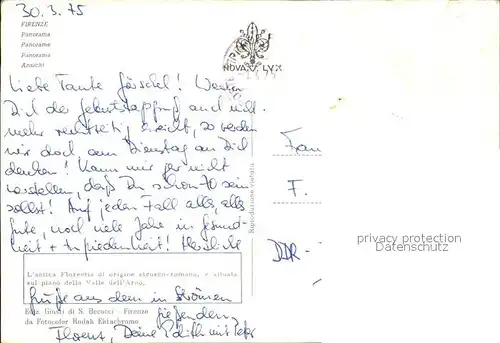 30.3.75
FIRENZE
Panorama
Panorama
Panorama
Ansicht
NOVA LVX
Liebe Tante Görschel! Wenn
Dich der Geburtstagsgruß auch nicht
mehr rechtzeitig erreicht, so werden
wir doch am Dienstag an Dich
denken! Kann mir gar nicht
vorstellen, daß Du schon 70 sein
sollst! Auf jeden Fall alles, alles
Gute, noch viele Jahre in Gesund-
heit + Zufriedenheit! Herzliche
L'antica Florentia di origine etrusco-romana, è situata
sul piano della Valle dell'Arno.
Grüße aus dem in Strömen
Ediz. Giusti di S. Becocci - Firenze
gießenden
da Fotocolor Kodak Ektachrome
Florenz, Deine Edith mit Peter
Riproduzione vietata
Frau
F.
DDR -
privacy protection
Datenschutz